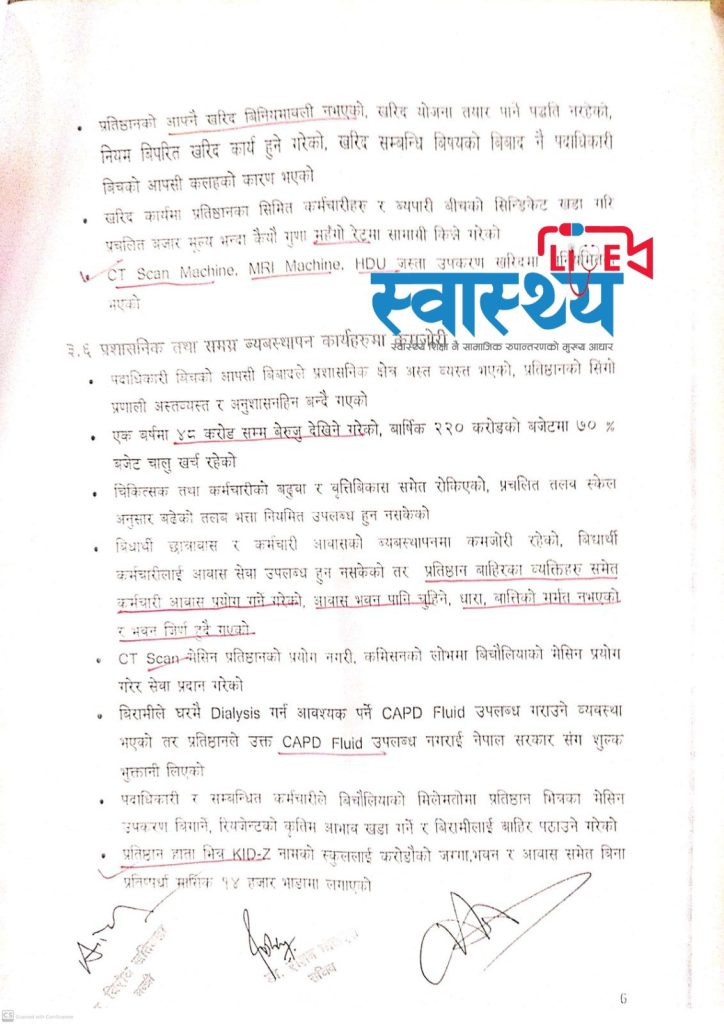 • प्रतिष्ठानको आफ्नै खरिद बिनियमावली नभएको, खरिद योजना तयार पार्ने पद्धति नरहेको,
नियम बिपरित खरिद कार्य हुने गरेको, खरिद सम्बन्धि बिषयको बिबाद नै पदाधिकारी
बिचको आपसी कलहको कारण भएको
• खरिद कार्यमा प्रतिष्ठानका सिमित कर्मचारीहरु र ब्यपारी बीचको सिन्डिकेट खडा गरि
प्रचलित बजार मूल्य भन्दा कैयौ गुणा महँगो रेटमा सामाग्री किन्ने गरेको
• CT Scan Machine, MRI Machine, HDU जस्ता उपकरण खरिदमा
भएको
LIVE
स्वास्थ्य
स्वास्थ्य शिक्षा नै सामाजिक रुपान्तरणको मुख्य आधार
३.६ प्रशासनिक तथा समग्र ब्यबस्थापन कार्यहरुमा कमजोरी
• पदाधिकारी बिचको आपसी बिबादले प्रशासनिक क्षेत्र अस्त ब्यस्त भएको, प्रतिष्ठानको सिंगो
प्रणाली अस्तब्यस्त र अनुशासनहिन बन्दै गएको
• एक बर्षमा ४८ करोड सम्म बेरुजु देखिने गरेको, बार्षिक २२० करोडको बजेटमा ७० %
बजेट चालु खर्च रहेको
• चिकित्सक तथा कर्मचारीको बढुवा र बृत्तिबिकास समेत रोकिएको, प्रचलित तलब स्केल
अनुसार बढेको तलब भत्ता नियमित उपलब्ध हुन नसकेको
• बिधार्थी छात्रावास र कर्मचारी आवासको ब्यबस्थापनमा कमजोरी रहेको, बिधार्थी
कर्मचारीलाई आवास सेवा उपलब्ध हुन नसकेको तर प्रतिष्ठान बाहिरका व्यक्तिहरु समेत
कर्मचारी आवास प्रयोग गर्ने गरेको, आवास भवन पानि चुहिने, धारा, बात्तिको मर्मत नभएको
र भवन जिर्ण हुदै गएको
• CT Scan मेसिन प्रतिष्ठानको प्रयोग नगरी, कमिसनको लोभमा बिचौलियाको मेसिन प्रयोग
गरेर सेवा प्रदान गरेको
• बिरामीले घरमै Dialysis गर्न आवश्यक पर्ने CAPD Fluid उपलब्ध गराउने ब्यवस्था
भएको तर प्रतिष्ठानले उक्त CAPD Fluid उपलब्ध नगराई नेपाल सरकार संग शुल्क
भुक्तानी लिएको
• पदाधिकारी र सम्बन्धित कर्मचारीले बिचौलियाको मिलेमतोमा प्रतिष्ठान भित्रका मेसिन
उपकरण बिगार्ने, रियजेन्टको कृतिम आभाव खडा गर्ने र बिरामीलाई बाहिर पठाउने गरेको
• प्रतिष्ठान हाता भित्र KID-Z नामको स्कुललाई करोडौको जग्गा,भवन र आवास समेत बिना
प्रतिष्पर्धा मासिक १४ हजार भाडामा लगाएको
सचिव
6
CS Scanned with CamScanner